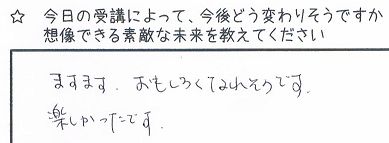 ☆ 今日の受講によって、今後どう変わりそうですか
想像できる素敵な未来を教えてください
ますます、おもしろくなれそうです。
楽しかったです。